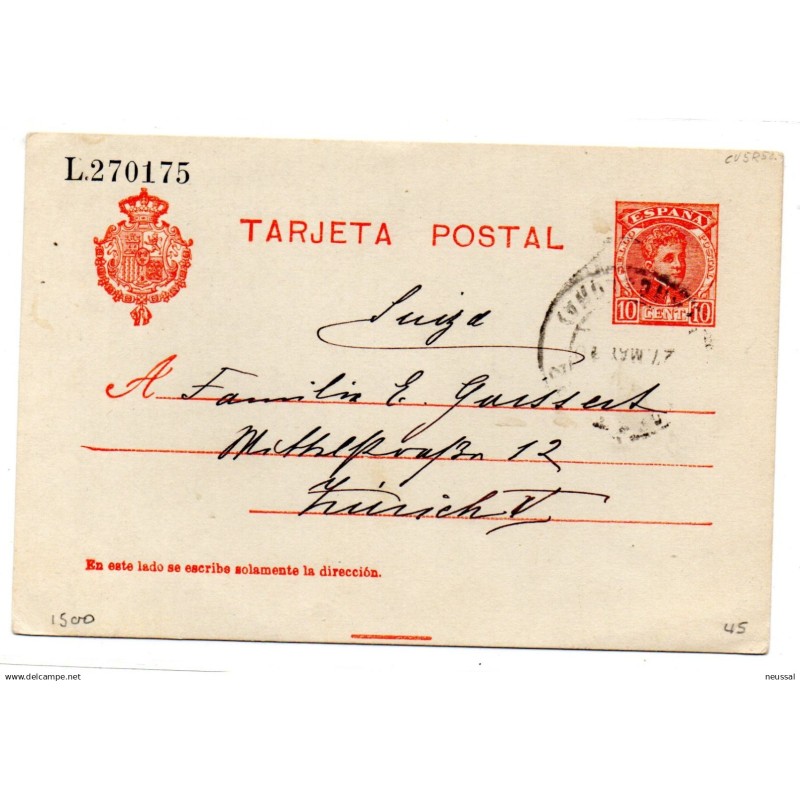 L.270175
TARJETA POSTAL
ESPAÑA
10 CENT 10
Suiza
27 MAY
A Familia E. Gossert
12
Zürich V
En este lado se escribe solamente la dirección.
1500
45
www.delcampe.net
neussal